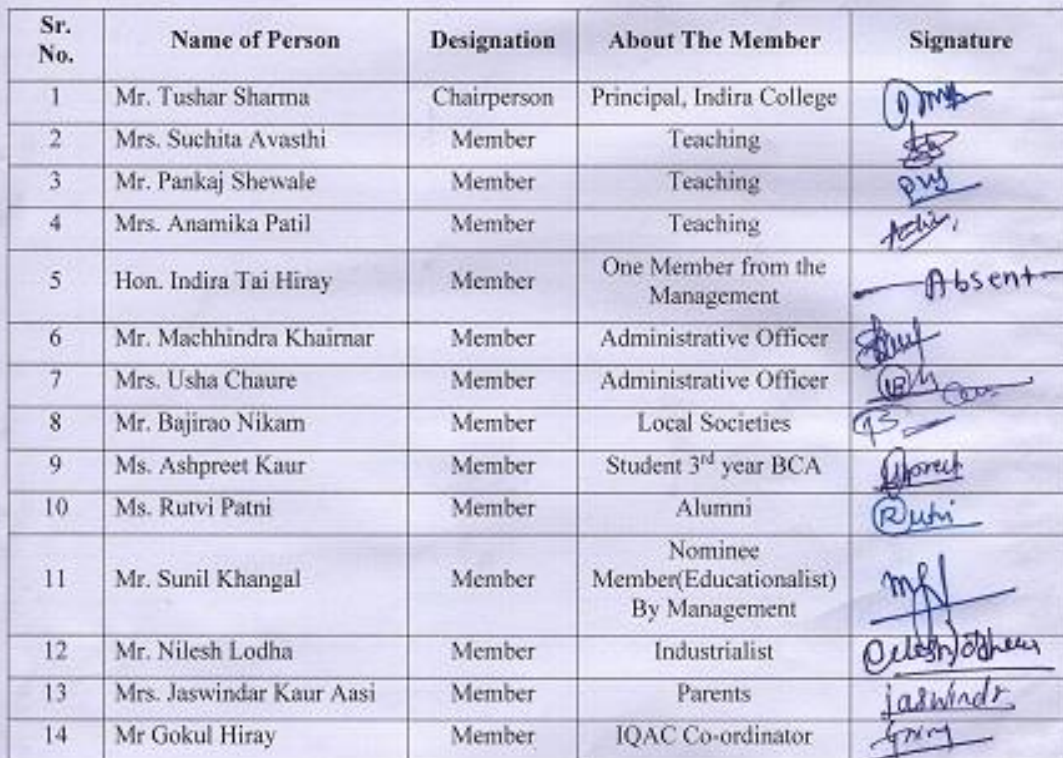 Sr. No. Name of Person Designation About The Member Signature
1 Mr. Tushar Sharma Chairperson Principal, Indira College
2 Mrs. Suchita Avasthi Member Teaching
3 Mr. Pankaj Shewale Member Teaching
4 Mrs. Anamika Patil Member Teaching
5 Hon. Indira Tai Hiray Member One Member from the Management Absent
6 Mr. Machhindra Khairnar Member Administrative Officer
7 Mrs. Usha Chaure Member Administrative Officer
8 Mr. Bajirao Nikam Member Local Societies
9 Ms. Ashpreet Kaur Member Student 3rd year BCA
10 Ms. Rutvi Patni Member Alumni
11 Mr. Sunil Khangal Member Nominee Member(Educationalist) By Management
12 Mr. Nilesh Lodha Member Industrialist
13 Mrs. Jaswindar Kaur Aasi Member Parents
14 Mr Gokul Hiray Member IQAC Co-ordinator